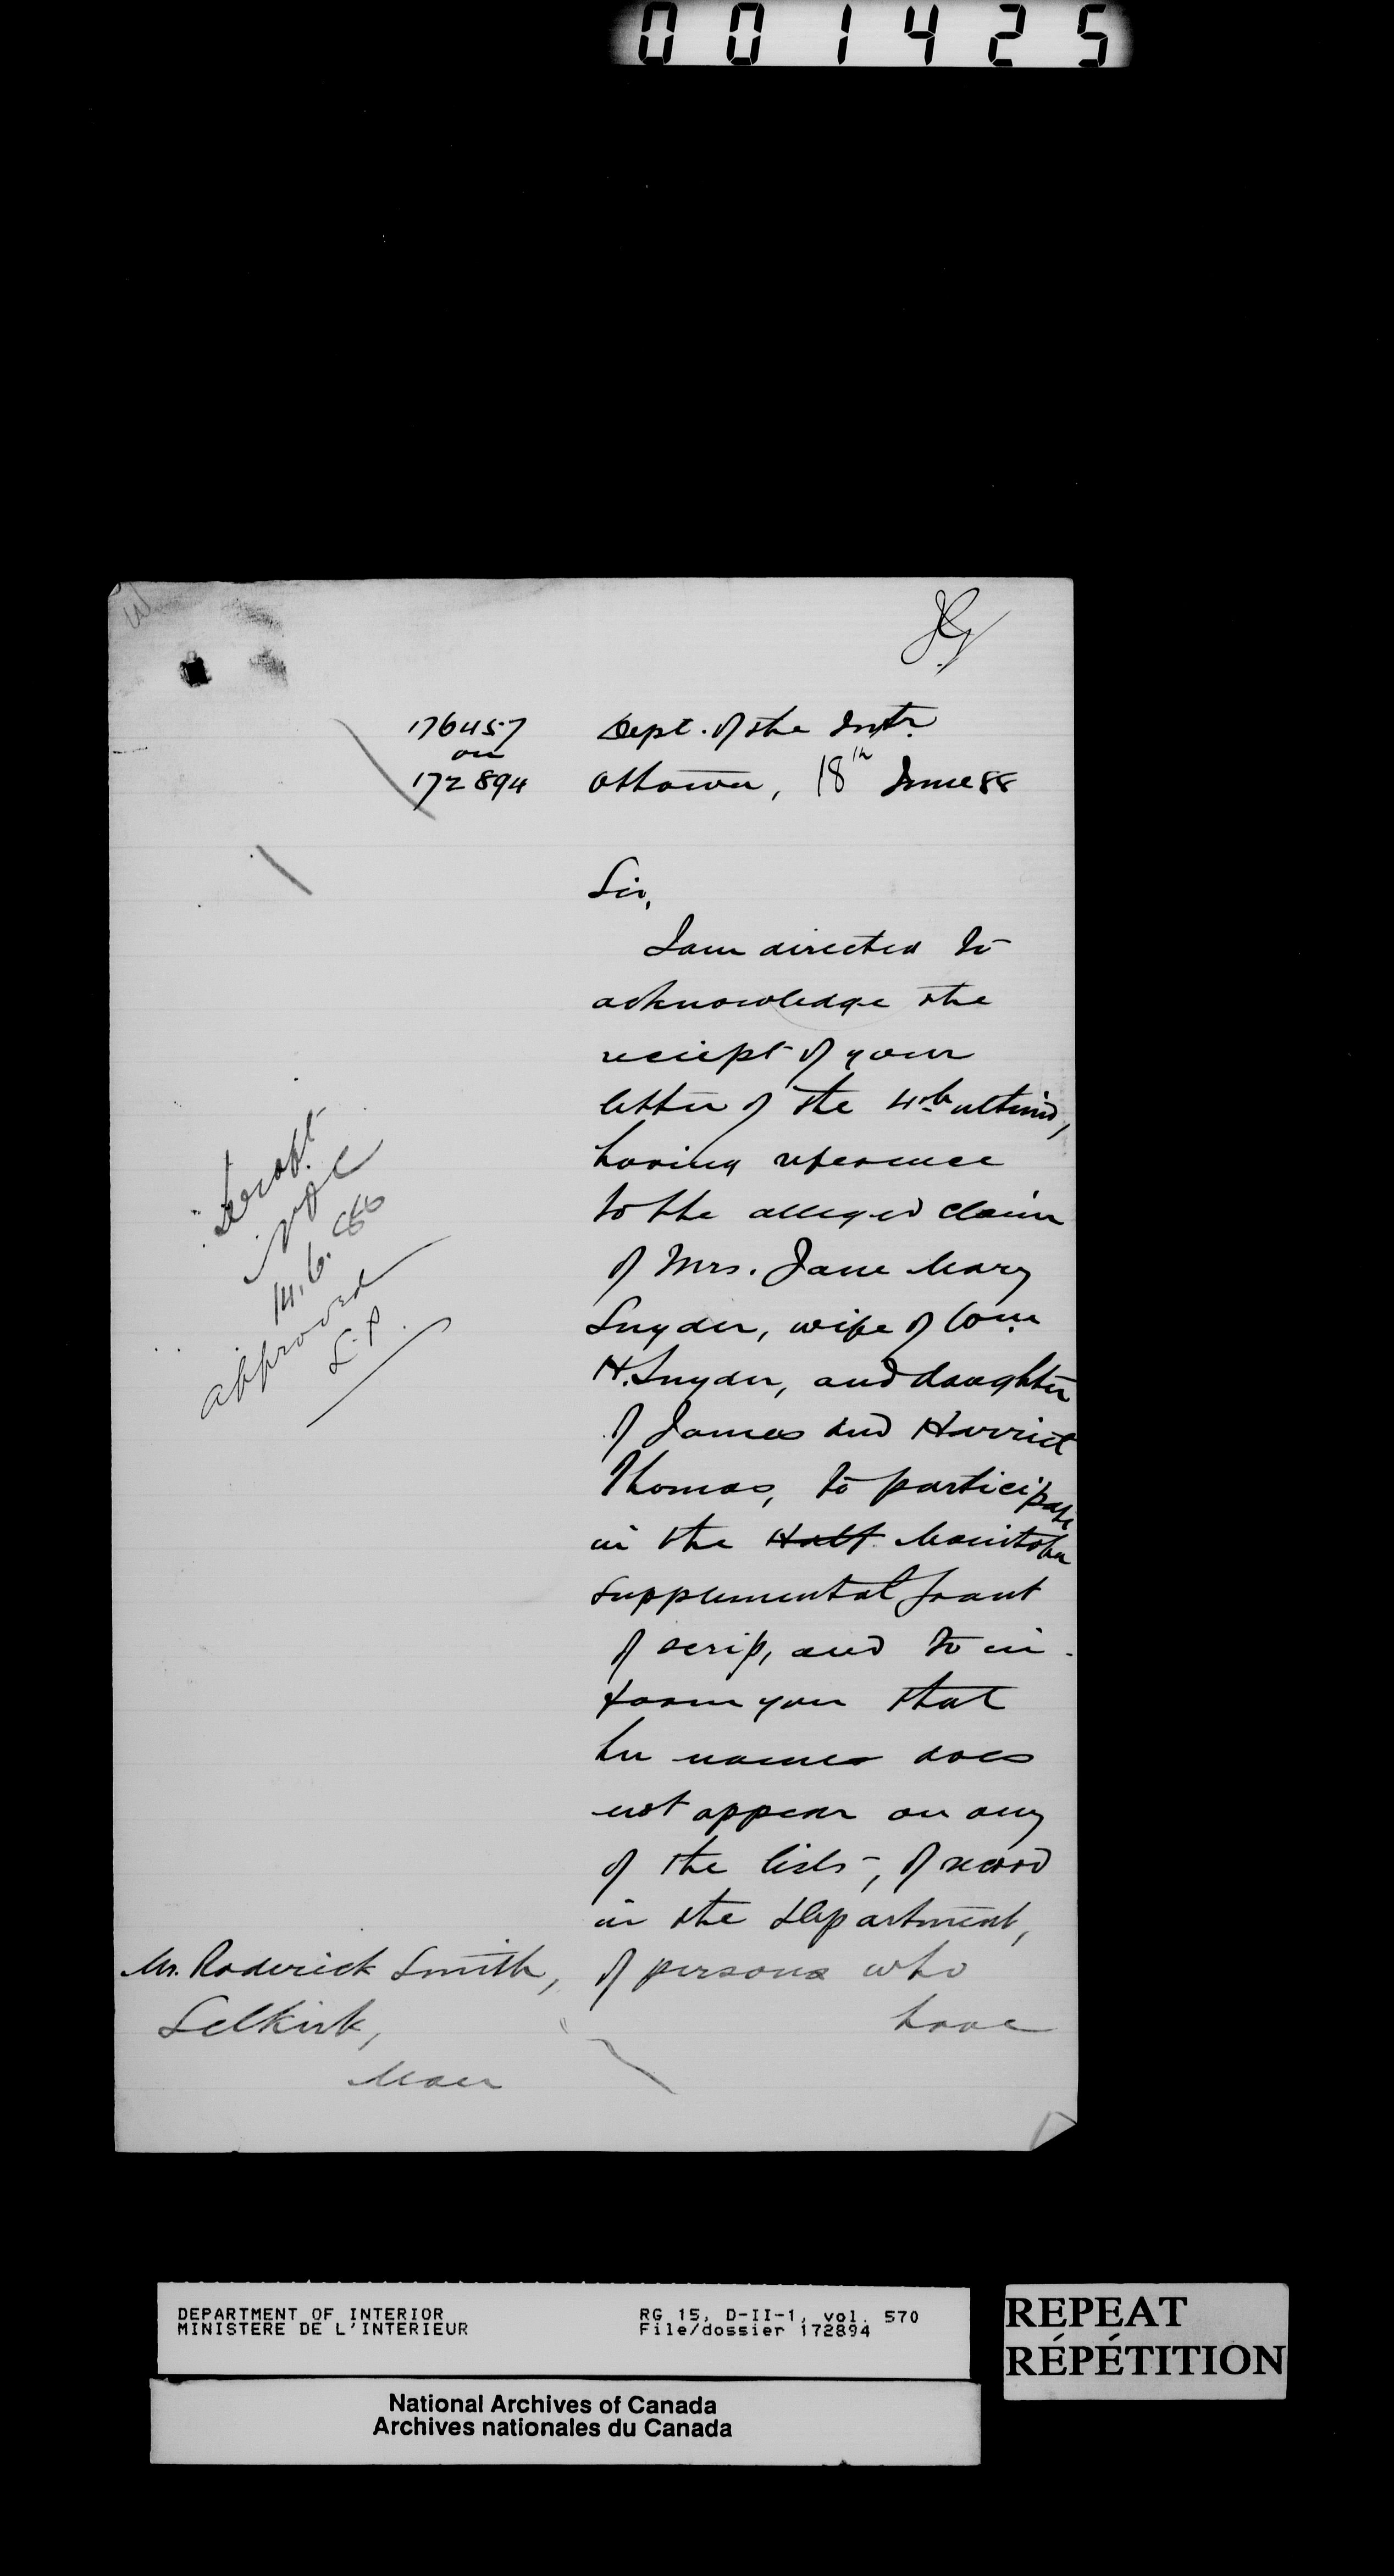 001425
176457
on
172894
Dept. of the Intr.
Ottawa, 18th June 88
Sir,
I am directed to
acknowledge the
reciept of your
letter of the 4th ultimo,
having reference
to the alleged claim
of Mrs. Jane Mary
Snyder, wife of
H. Snyder, and daughter
of James and Harriet
Thomas, to participate
in the Half Manitoba
supplemental grant
of scrip, and to in-
form you that
her names does
not appear on any
of the lists, of record
in the Department,
of persons who
have
Draft
14.6.88
approved
Mr. Roderick Smith,
Selkirk,
Man
DEPARTMENT OF INTERIOR
MINISTERE DE L'INTERIEUR
RG 15, D-II-1, vol. 570
File/dossier 172894
National Archives of Canada
Archives nationales du Canada
REPEAT
RÉPÉTITION